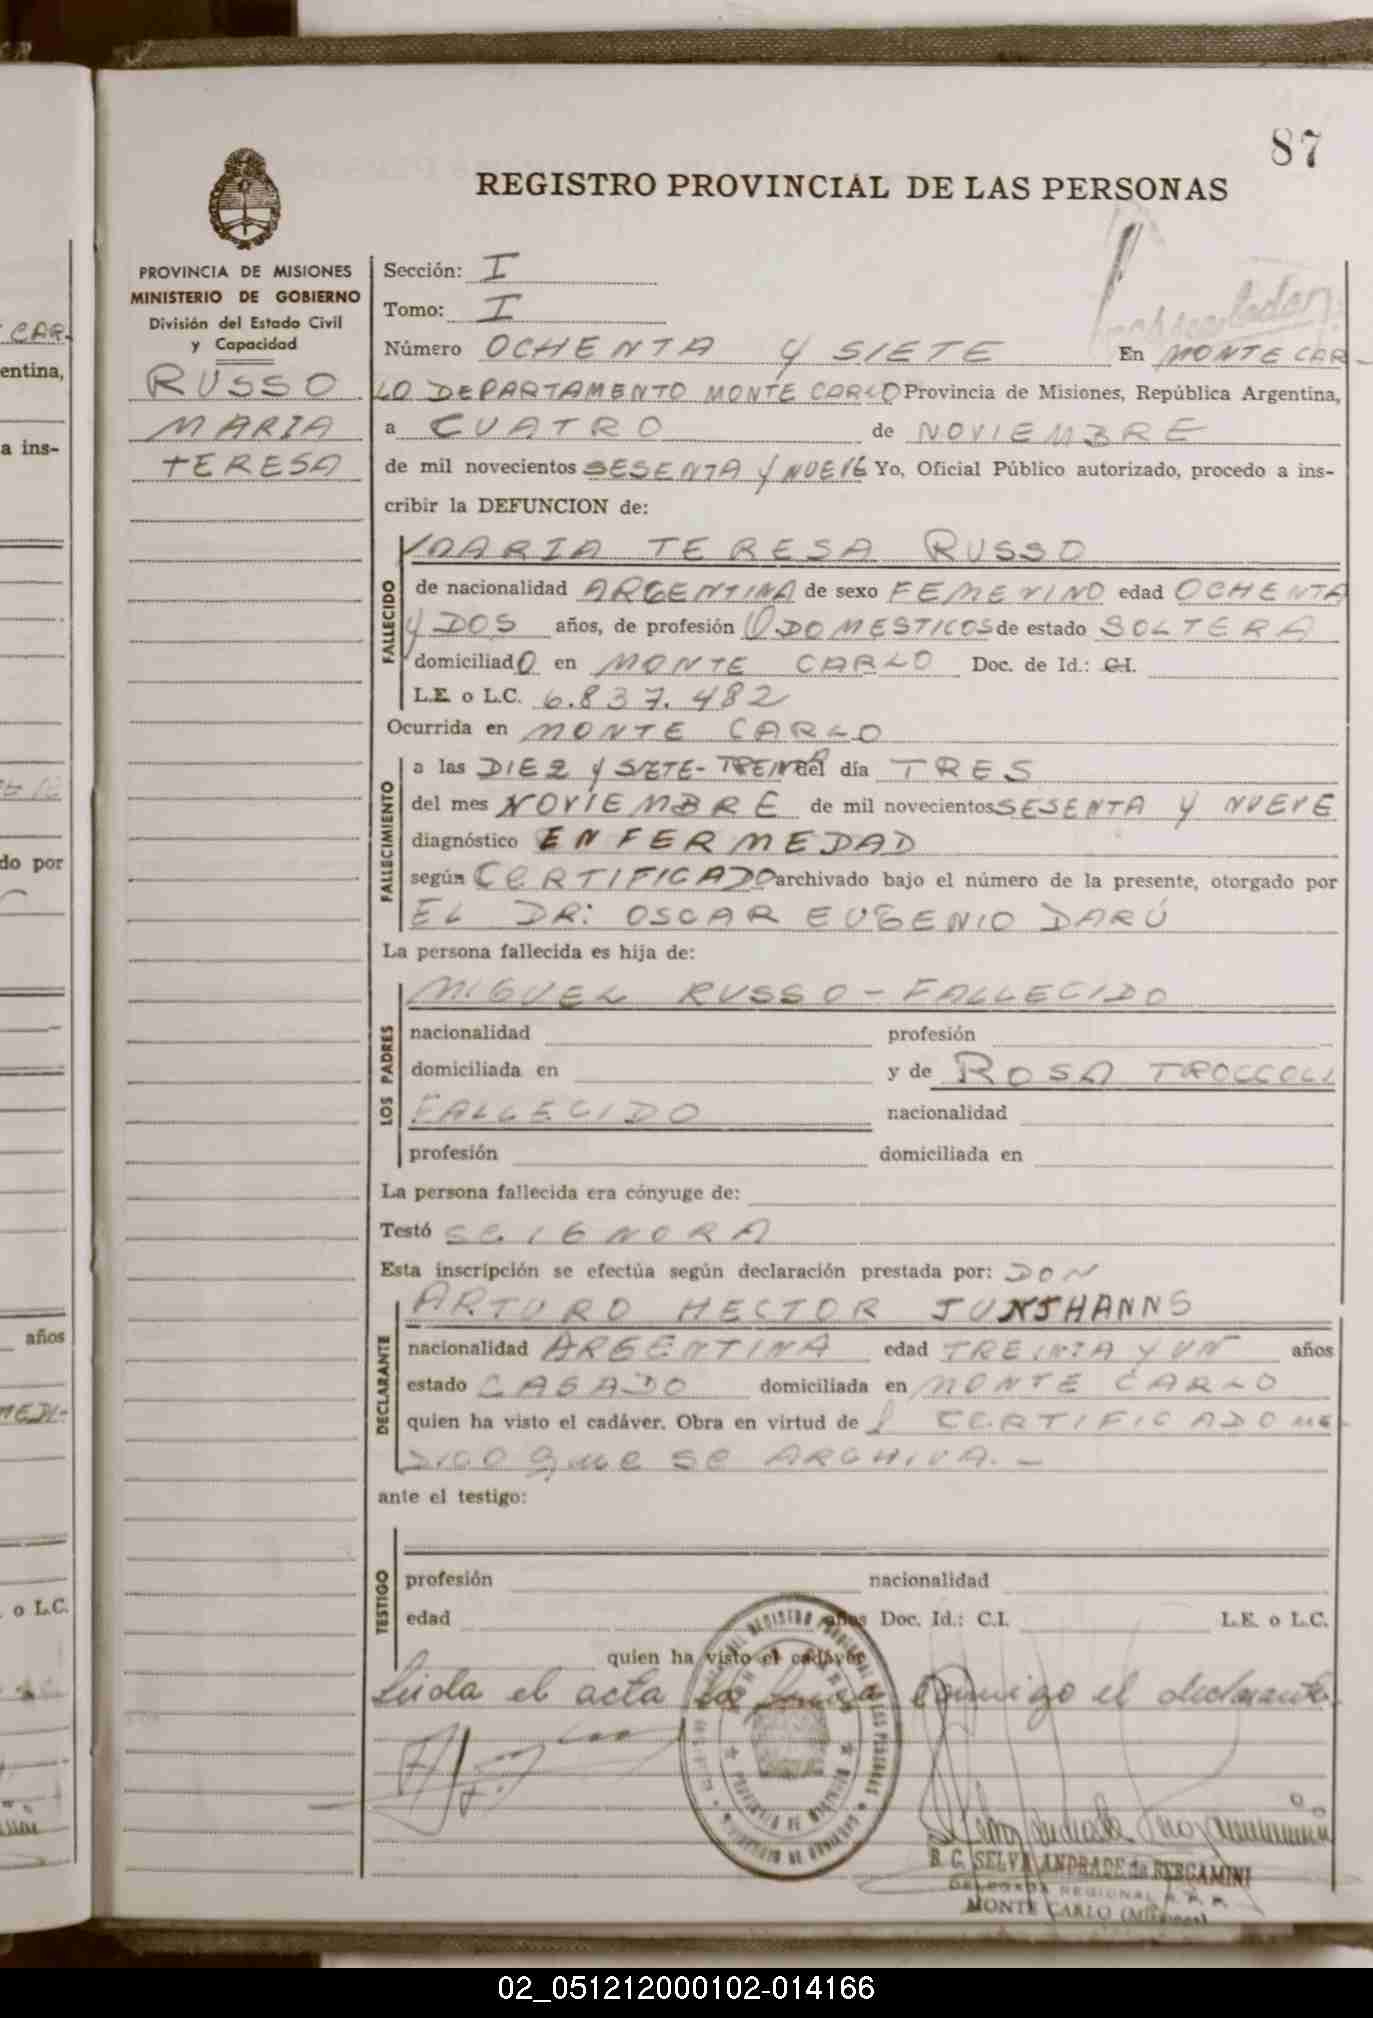 87
REGISTRO PROVINCIAL DE LAS PERSONAS
PROVINCIA DE MISIONES
MINISTERIO DE GOBIERNO
División del Estado Civil
y Capacidad
RUSSO
MARIA
TERESA
Sección: I
Tomo: I
Número OCHENTA Y SIETE En MONTE CAR-
LO DEPARTAMENTO MONTE CARLO Provincia de Misiones, República Argentina,
a CUATRO de NOVIEMBRE
de mil novecientos SESENTA Y NUEVE Yo, Oficial Público autorizado, procedo a ins-
cribir la DEFUNCION de:
FALLECIDO
MARIA TERESA RUSSO
de nacionalidad ARGENTINA de sexo FEMENINO edad OCHENTA
Y DOS años, de profesión Q DOMESTICOS de estado SOLTERA
domiciliado en MONTE CARLO Doc. de Id.: C.I.
L.E. o L.C. 6.837.482
Ocurrida en MONTE CARLO
FALLECIMIENTO
a las DIEZ Y SIETE-TREINTA del día TRES
del mes NOVIEMBRE de mil novecientos SESENTA Y NUEVE
diagnóstico ENFERMEDAD
según CERTIFICADO archivado bajo el número de la presente, otorgado por
EL DR: OSCAR EUGENIO DARÚ
La persona fallecida es hija de:
LOS PADRES
MIGUEL RUSSO - FALLECIDO
nacionalidad profesión
domiciliada en y de ROSA TROCCOLI
FALLECIDO nacionalidad
profesión domiciliada en
La persona fallecida era cónyuge de:
Testó SE IGNORA
Esta inscripción se efectúa según declaración prestada por: DON
DECLARANTE
ARTURO HECTOR JUNJHANNS
nacionalidad ARGENTINA edad TREINTA Y UN años
estado CASADO domiciliada en MONTE CARLO
quien ha visto el cadáver. Obra en virtud del CERTIFICADO ME-
DICO que se ARCHIVA.-
ante el testigo:
TESTIGO
profesión nacionalidad
edad años Doc. Id.: C.I. L.E. o L.C.
quien ha visto el cadáver
Leida el acta la firma conmigo el declarante.
B. C. SELVA ANDRADE de BERGAMINI
DELEGADA REGIONAL
MONTE CARLO (Misiones)
02_051212000102-014166